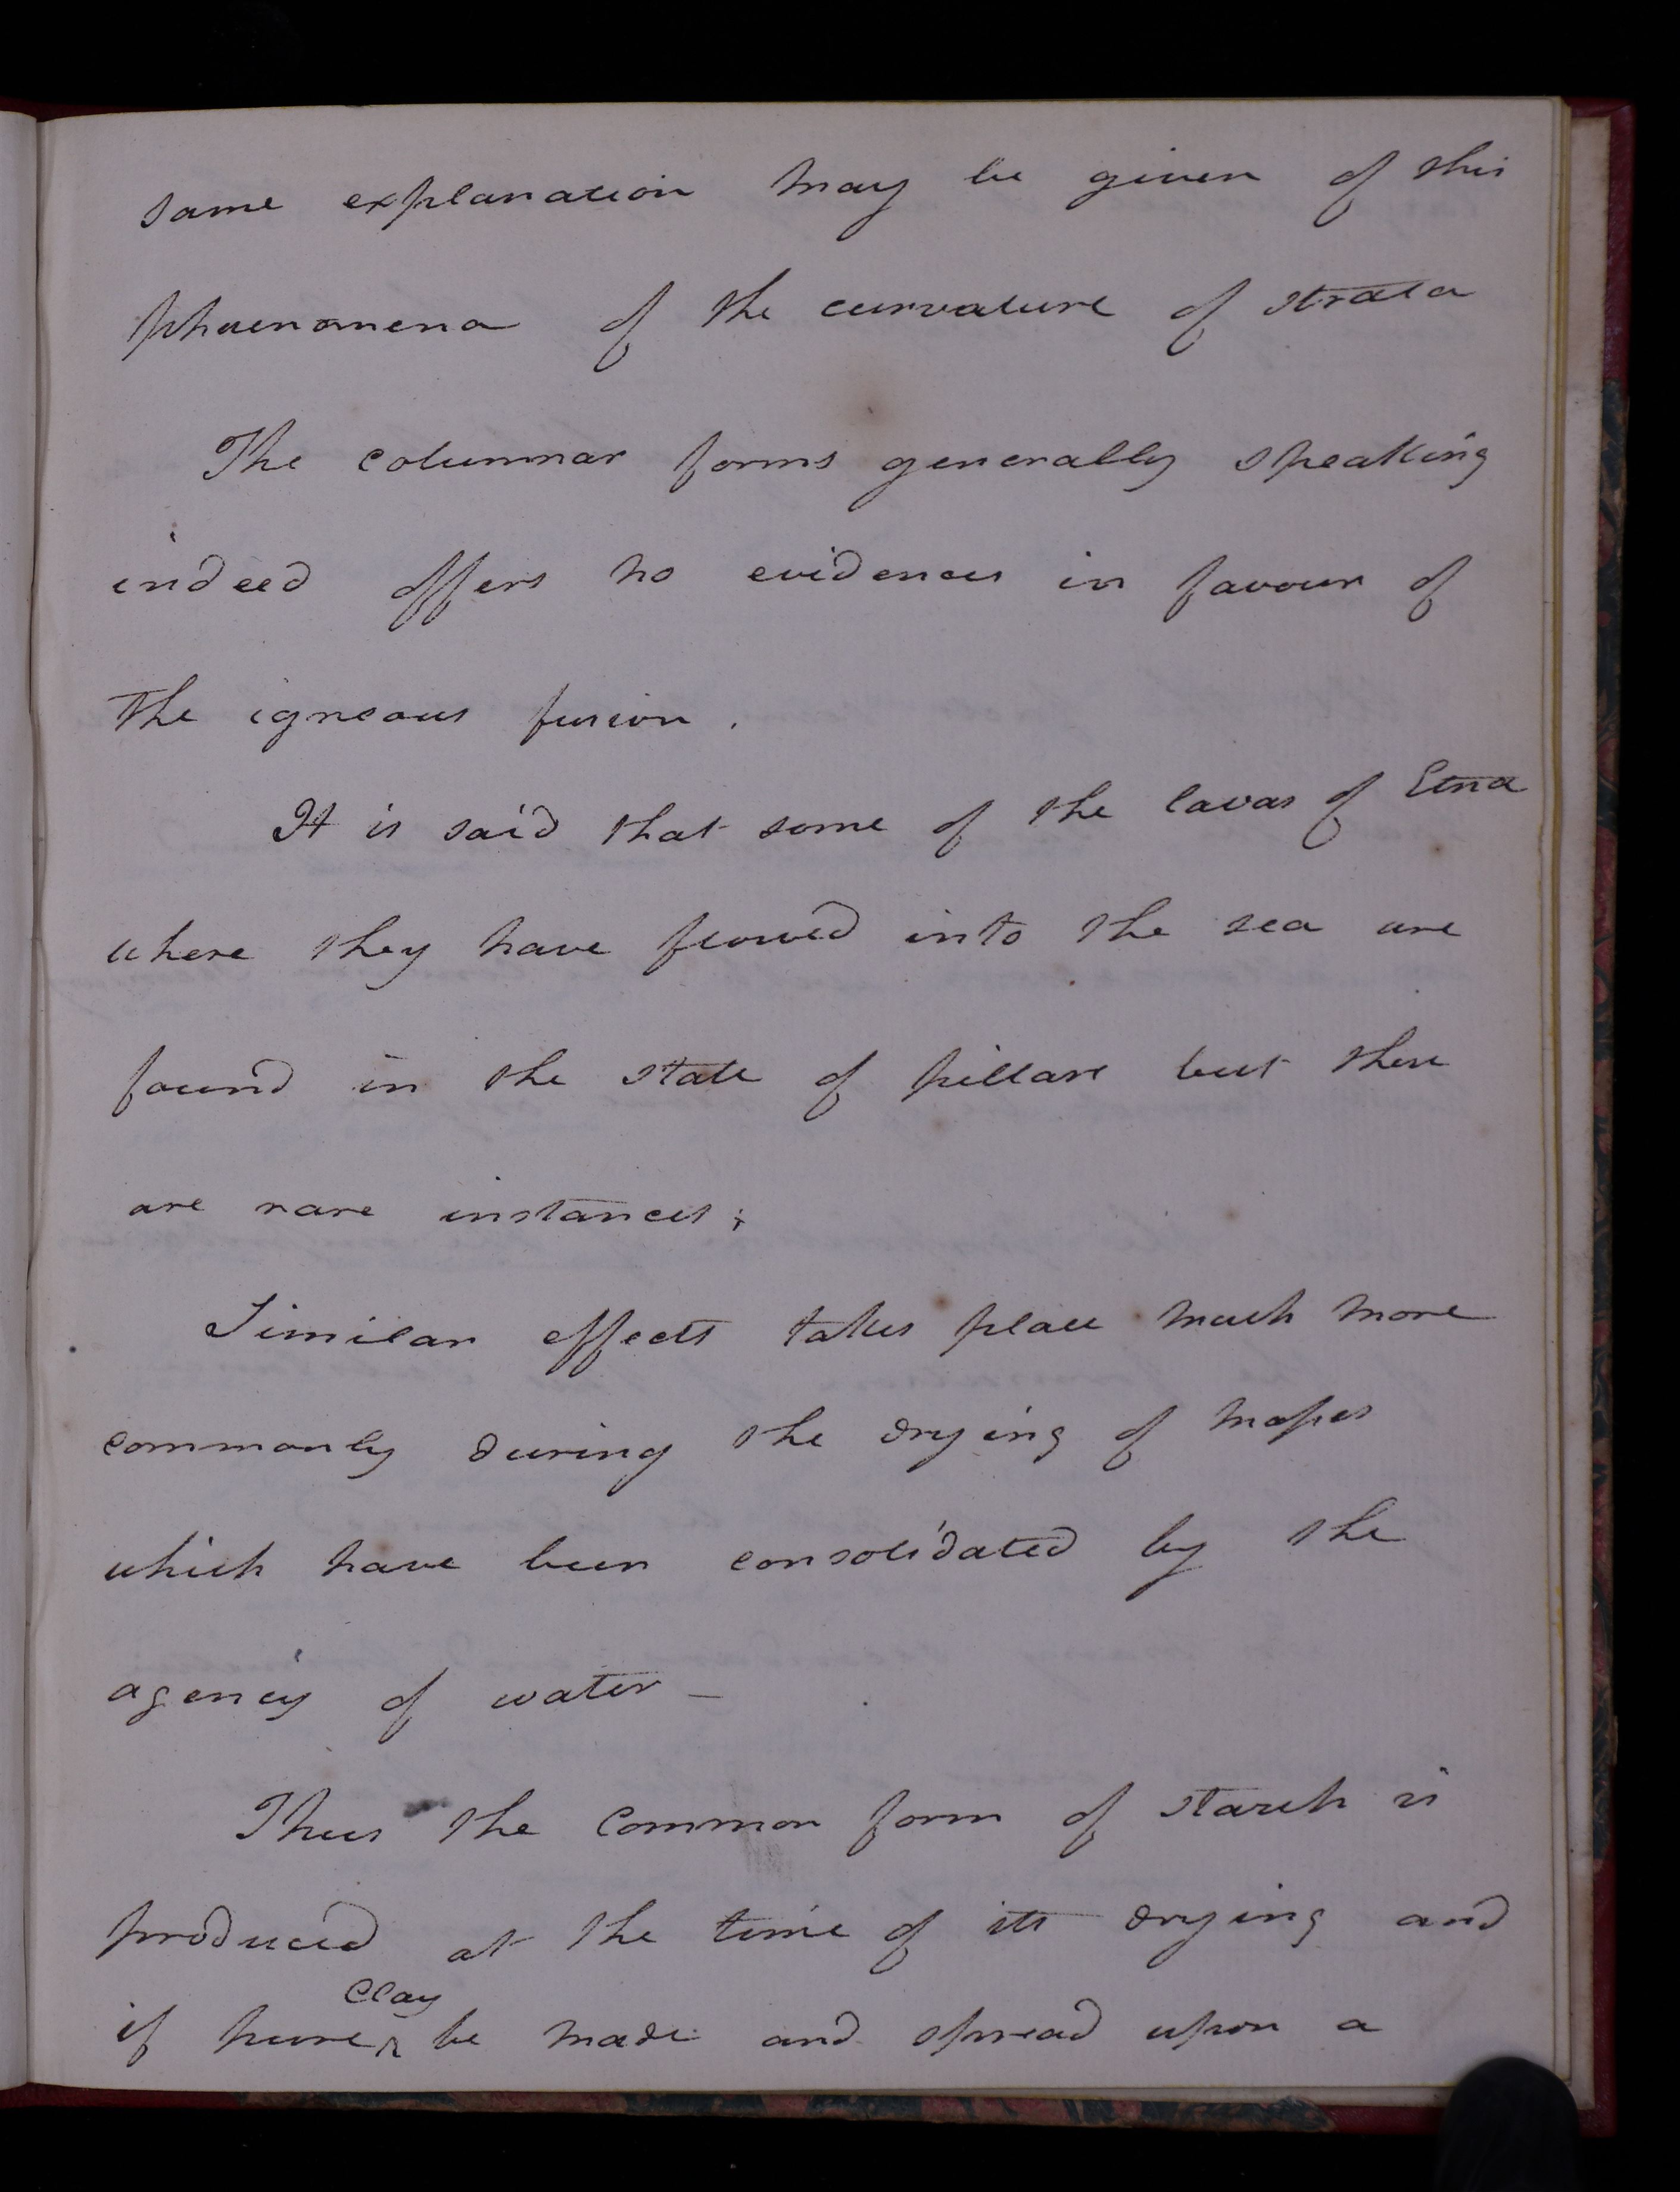 same explanation may be given of this
phaenomena of the curvature of strata
The columnar forms generally speaking
indeed offers no evidences in favour of
the igneous fusion.
It is said that some of the lavas of Etna
where they have flowed into the sea are
found in the state of pillars but these
are rare instances;
Similar effects takes place much more
commonly during the drying of masses
which have been consolidated by the
agency of water –
Thus the Common form of starch is
produced at the time of its drying and
if pure Clay be made and spread upon a